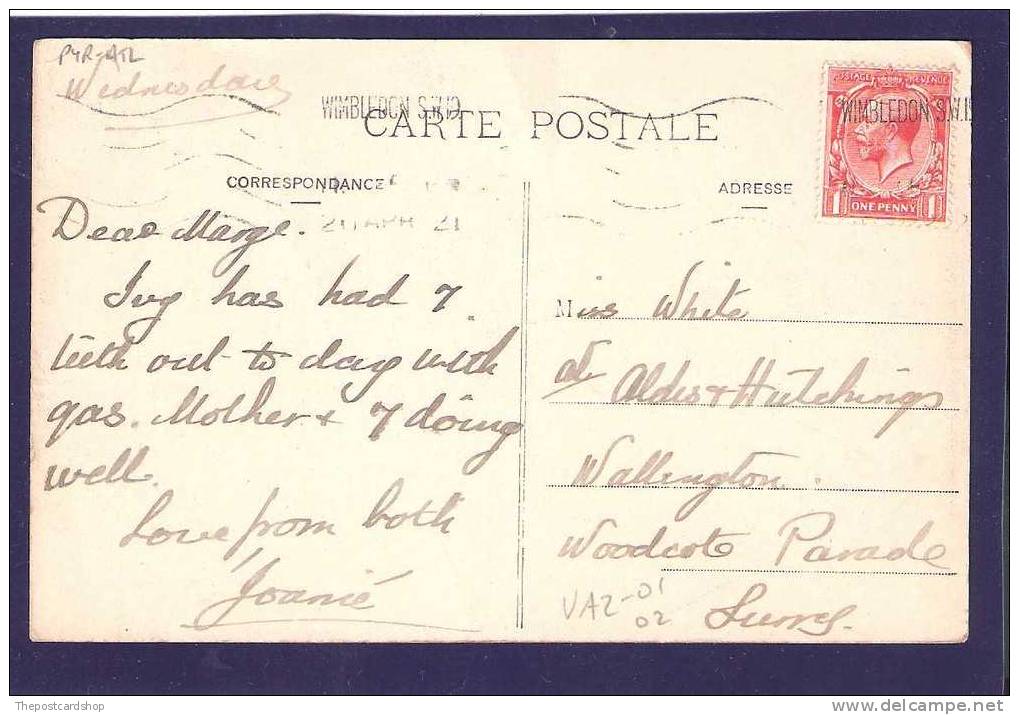 PYR-ATL
Wednesday
WIMBLEDON S.W.19
WIMBLEDON S.W.19
POSTAGE REVENUE
1 ONE PENNY 1
CARTE POSTALE
CORRESPONDANCE
ADRESSE
APR 21
Dear Marge.
Ivy has had 7
teeth out to day with
gas. Mother & 7 doing
well.
Love from both
Joanie
Miss White
at Aldis & Hutchings
Wallington.
Woodcote Parade
Surrey.
VAZ-01
02
Thepostcardshop
delcampe.net